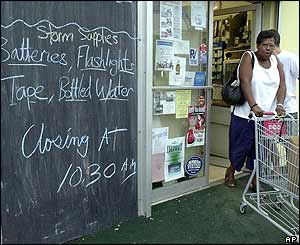 Storm Supplies
Batteries, Flashlights
Tape, Bottled Water
Closing AT
10.30 AM
AP